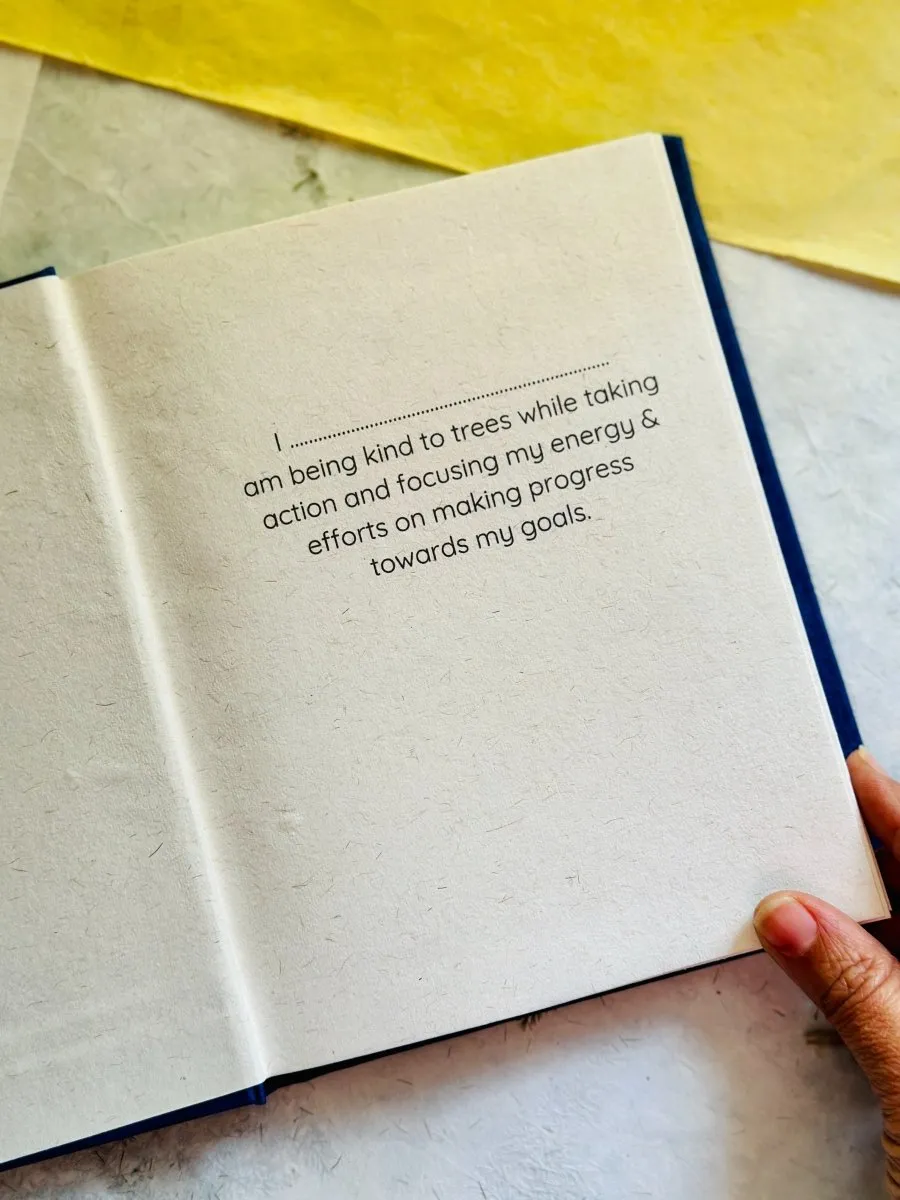 I ............................................................
am being kind to trees while taking
action and focusing my energy &
efforts on making progress
towards my goals.